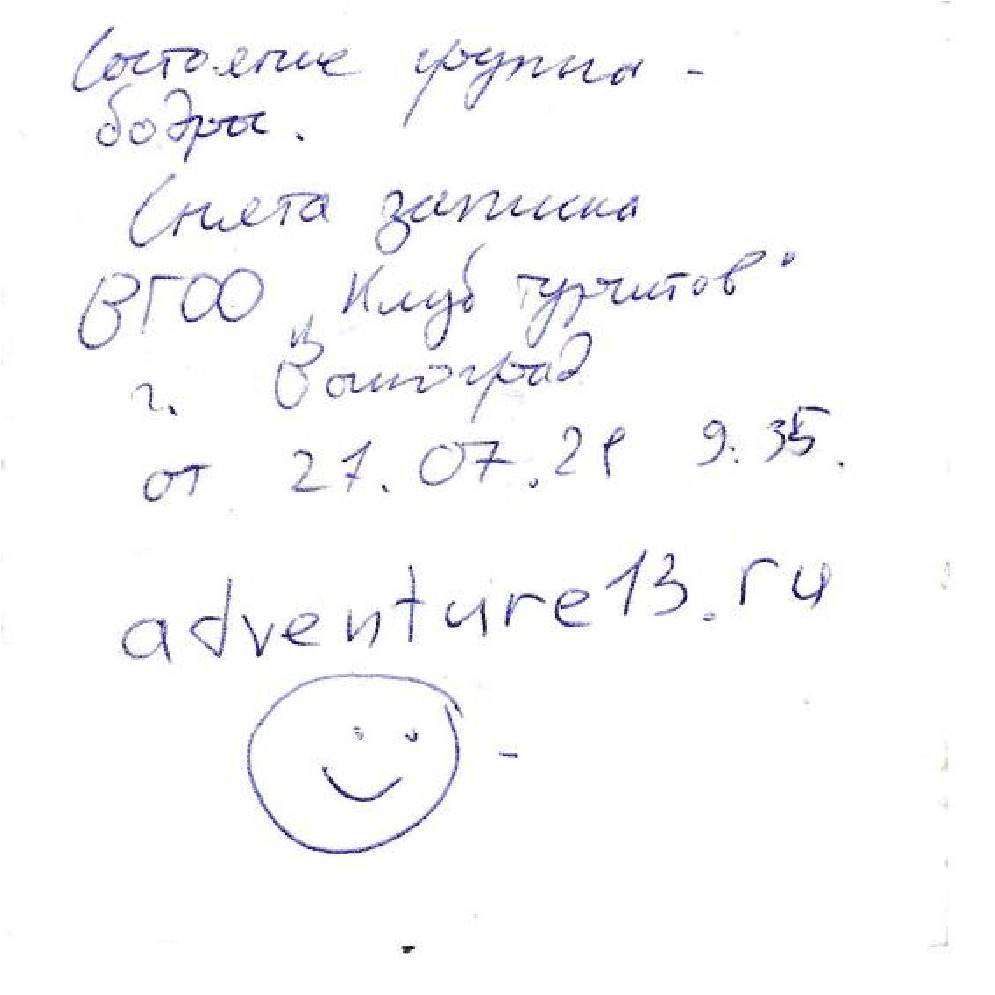 Состояние группы -
бодры.
Снята записка
ВГОО "Клуб туристов"
г. Волгоград
от 21.07.21 9.35.
adventure13.ru